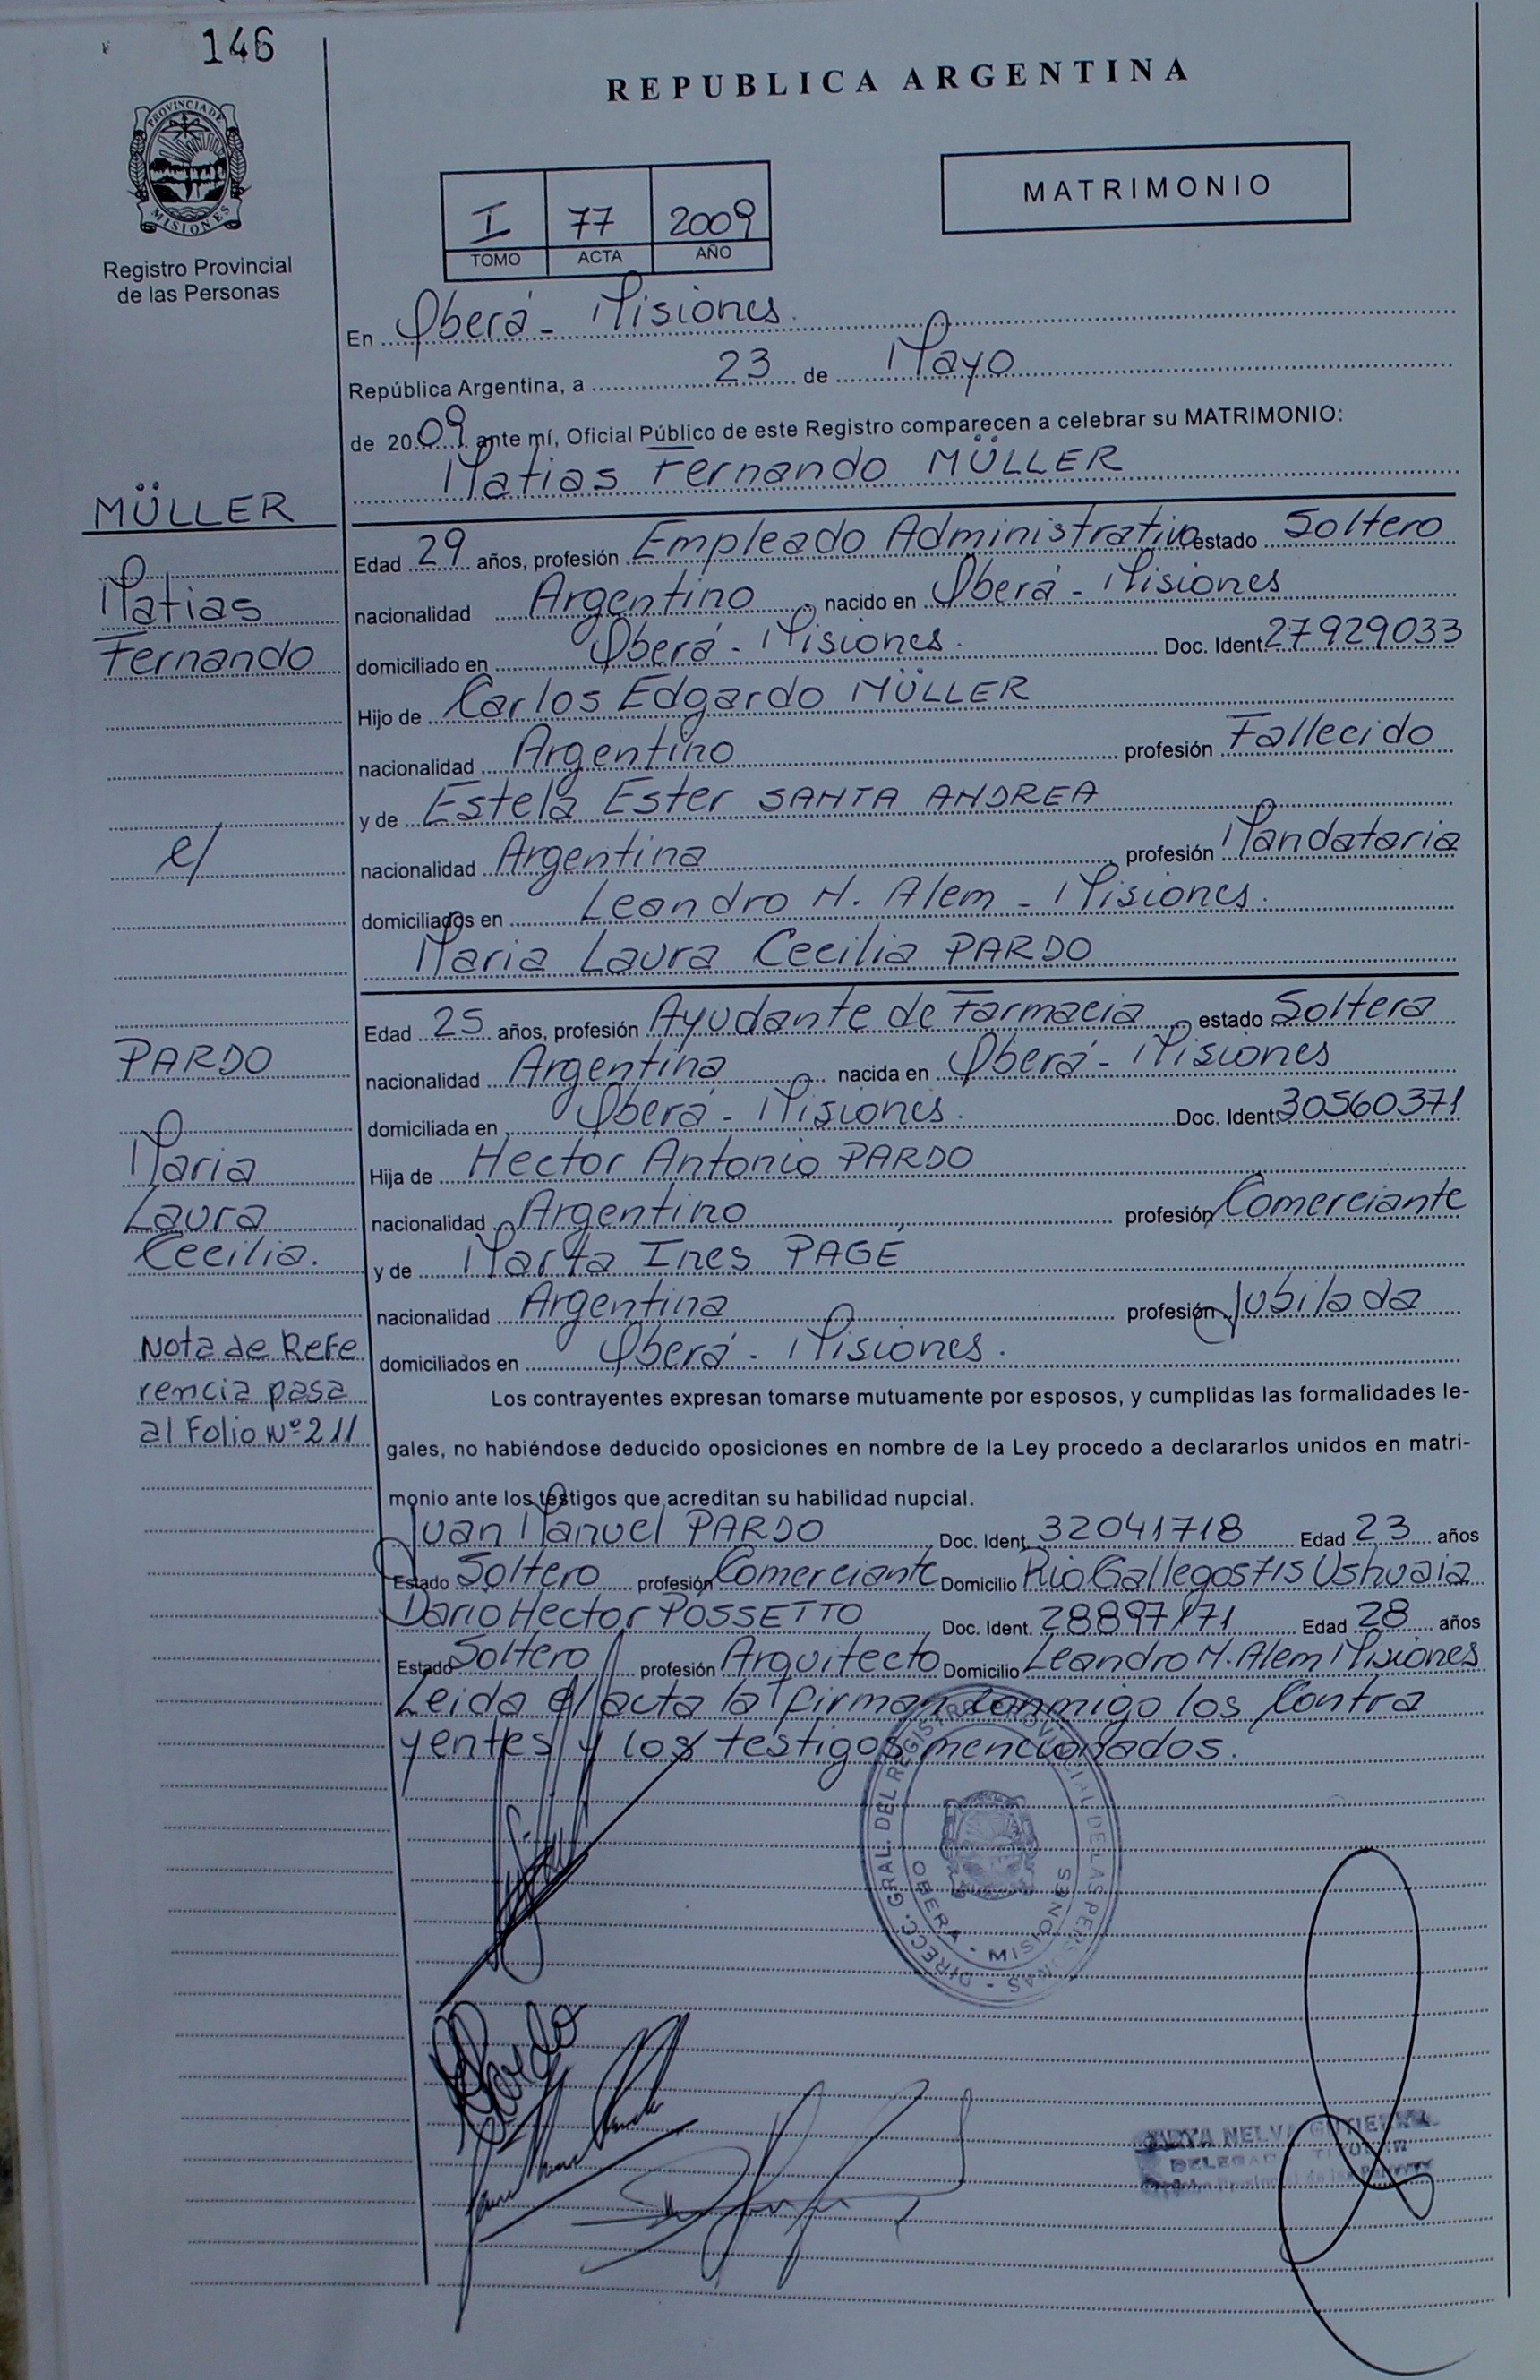 146
REPUBLICA ARGENTINA
PROVINCIA DE
MISIONES
Registro Provincial
de las Personas
I 77 2009
TOMO ACTA AÑO
MATRIMONIO
En Oberá - Misiones.
República Argentina, a 23 de Mayo
de 2009 ante mí, Oficial Público de este Registro comparecen a celebrar su MATRIMONIO:
Matias Fernando MÜLLER
MÜLLER
Matias
Fernando
Edad 29 años, profesión Empleado Administrativo estado Soltero
nacionalidad Argentino, nacido en Oberá - Misiones
domiciliado en Oberá - Misiones. Doc. Ident. 27929033
Hijo de Carlos Edgardo MÜLLER
nacionalidad Argentino profesión Fallecido
y de Estela Ester SANTA ANDREA
c/
nacionalidad Argentina profesión Mandataria
domiciliados en Leandro N. Alem - Misiones.
Maria Laura Cecilia PARDO
Edad 25 años, profesión Ayudante de Farmacia estado Soltera
PARDO
Maria
Laura
Cecilia.
nacionalidad Argentina nacida en Oberá - Misiones
domiciliada en Oberá - Misiones. Doc. Ident. 30560371
Hija de Hector Antonio PARDO
nacionalidad Argentino profesión Comerciante
y de Marta Ines PAGE
nacionalidad Argentina profesión Jubilada
domiciliados en Oberá - Misiones.
Nota de Refe
rencia pasa
al Folio Nº 211
Los contrayentes expresan tomarse mutuamente por esposos, y cumplidas las formalidades le-
gales, no habiéndose deducido oposiciones en nombre de la Ley procedo a declararlos unidos en matri-
monio ante los testigos que acreditan su habilidad nupcial.
Juan Manuel PARDO Doc. Ident. 32041718 Edad 23 años
Estado Soltero profesión Comerciante Domicilio Rio Gallegos 715 Ushuaia
Dario Hector POSSETTO Doc. Ident. 28897171 Edad 28 años
Estado Soltero profesión Arquitecto Domicilio Leandro N. Alem Misiones
Leida el acta la firman conmigo los Contra
yentes y los testigos mencionados.
DIRECC. GRAL. DEL REGISTRO PROVINCIAL DE LAS PERSONAS
OBERA - MISIONES
Pardo
NELVA